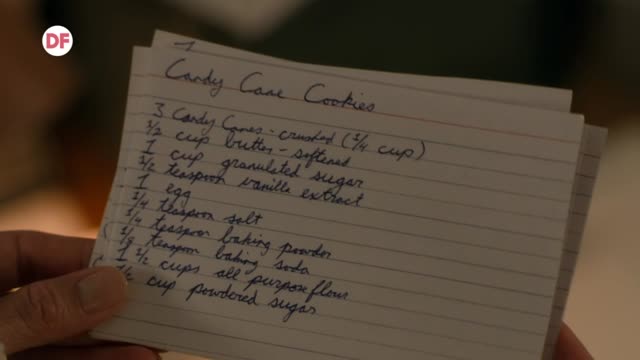 DF
1
Candy Cane Cookies
3 Candy Canes - crushed (1/4 cup)
1/2 cup butter - softened
1 cup granulated sugar
1/2 teaspoon vanilla extract
1 egg
1/4 teaspoon salt
1/4 teaspoon baking powder
1/8 teaspoon baking soda
1 1/2 cups all purpose flour
1/2 cup powdered sugar